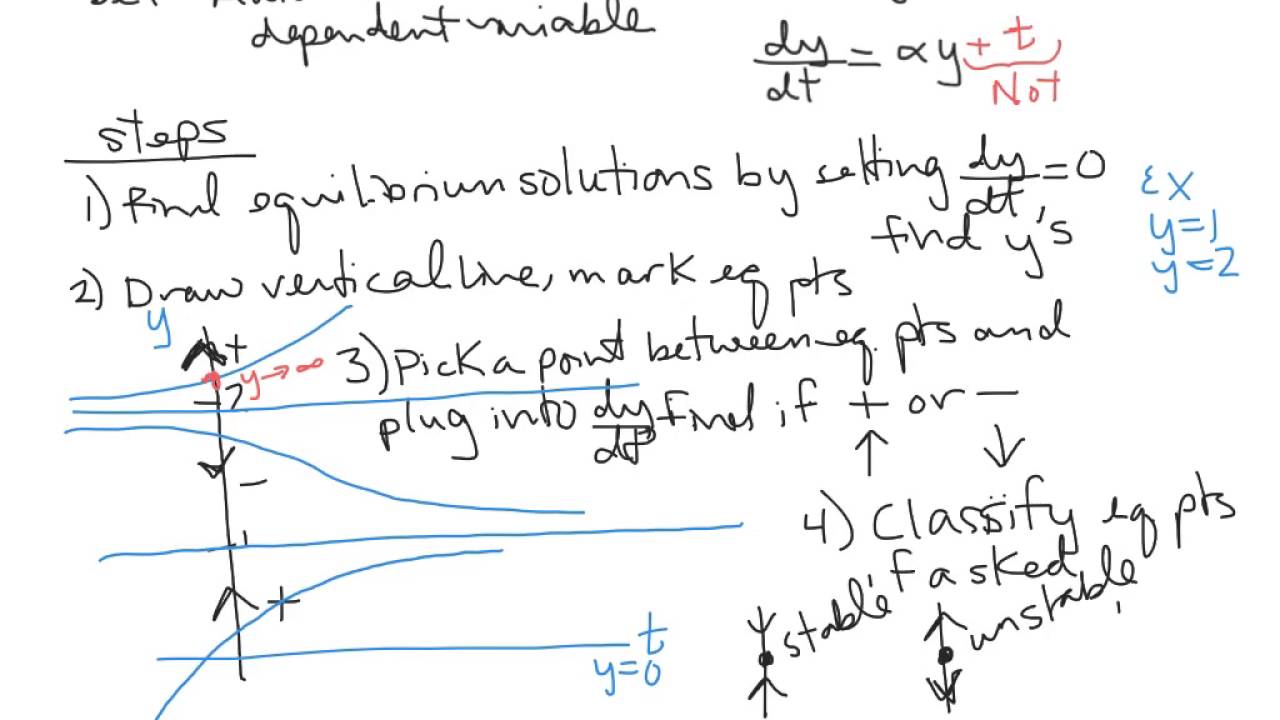 dependent variable
dy/dt = αy + t
Not
steps
1) Find equilibrium solutions by setting dy/dt = 0
find y's
Ex
y=1
y=2
2) Draw vertical line, mark eq pts
y
+
y→∞
2
3) Pick a point between eq. pts and
plug into dy/dt Find if + or −
↑ ↓
−
1
4) Classify eq pts
if asked
+
stable
unstable
t
y=0